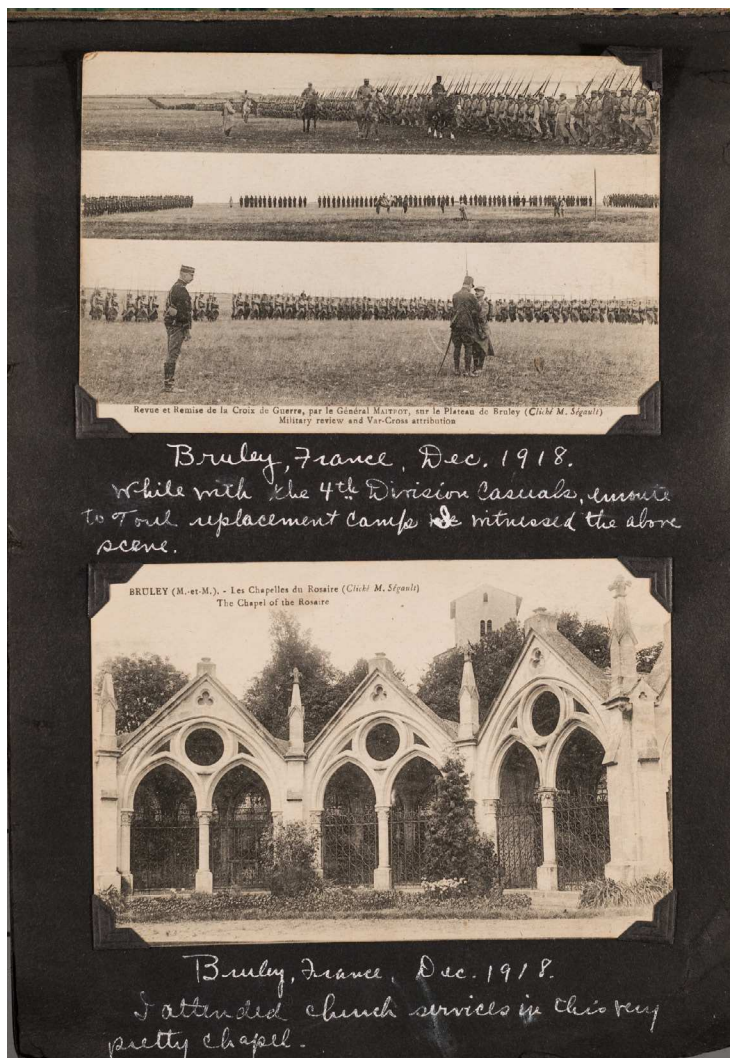 Revue et Remise de la Croix de Guerre, par le Général MAITROT, sur le Plateau de Bruley (Cliché M. Ségault)
Military review and Var-Cross attribution
Bruley, France, Dec. 1918.
While with the 4th Division Casuals, enroute
to Toul replacement camp I witnessed the above
scene.
BRULEY (M.-et-M.). - Les Chapelles du Rosaire (Cliché M. Ségault)
The Chapel of the Rosaire
Bruley, France, Dec. 1918.
I attended church services in this very
pretty chapel.